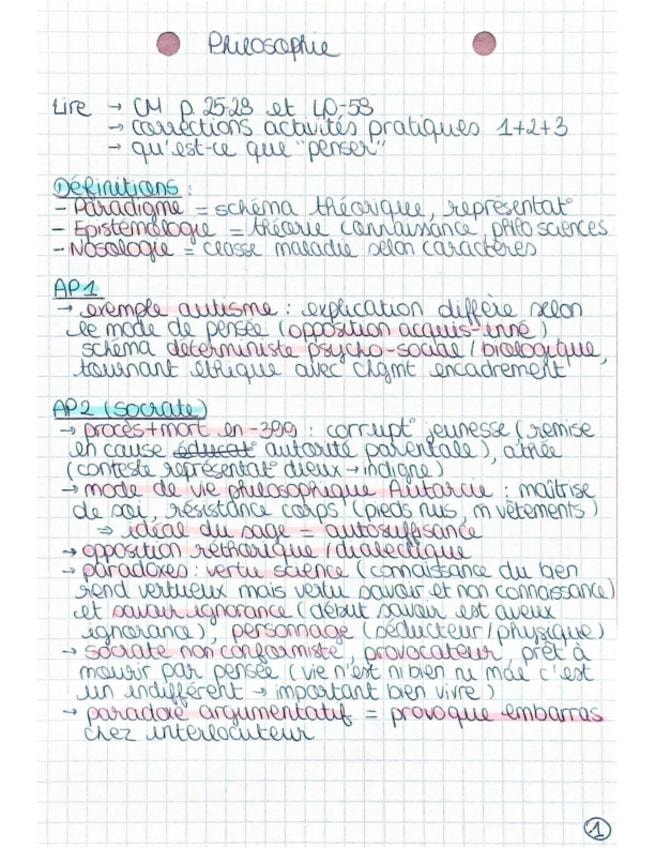 Philosophie
Lire → CM p. 25-28 et 40-58
→ corrections activités pratiques 1+2+3
→ qu'est-ce que "penser"
Définitions :
- Paradigme = schéma théorique, représentat°
- Epistémologie = théorie connaissance, philo sciences
- Nosologie = classe maladie selon caractères
AP1
→ exemple autisme : explication diffère selon
le mode de pensée (opposition acquis-inné)
schéma déterministe psycho-social / biologique,
tournant éthique avec chgmt encadrement
AP2 (Socrate)
→ procès+mort en -399 : corrupt° jeunesse (remise
en cause éducat° autorité parentale), athée
(conteste représentat° dieux → indigne)
→ mode de vie philosophique Autarcie : maîtrise
de soi, résistance corps (pieds nus, m vêtements)
⇒ idéal du sage = autosuffisance
→ opposition réthorique / dialectique
→ paradoxes : vertu science (connaissance du bien
rend vertueux mais vertu savoir et non connassance)
et savoir ignorance (début savoir est aveux
ignorance), personnage (séducteur / physique)
→ Socrate non conformiste, provocateur, prêt à
mourir par pensée (vie n'est ni bien ni mal c'est
un indifférent → important bien vivre)
→ paradoxe argumentatif = provoque embarras
chez interlocuteur
1